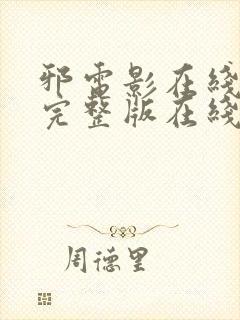 邪雷影在线
完整版在线
周德里